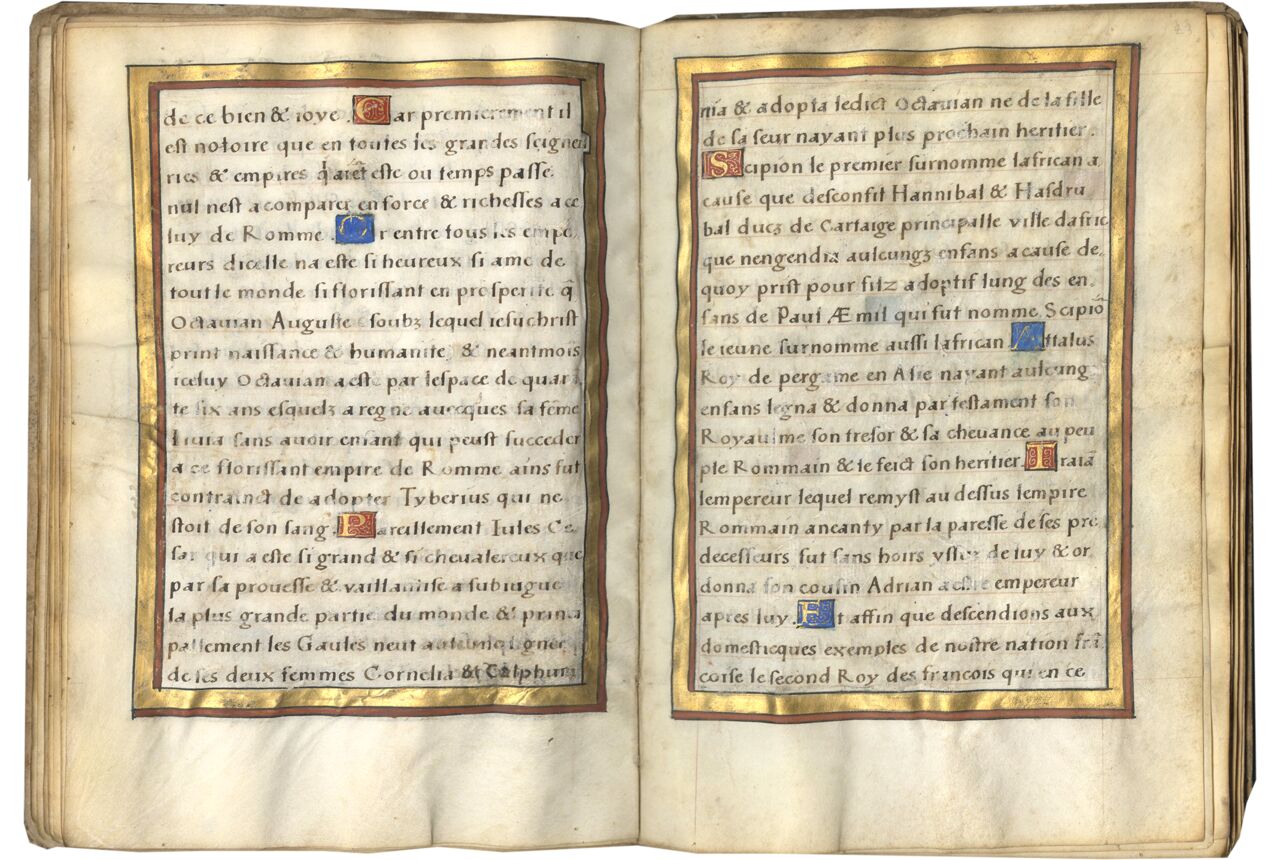 de ce bien & ioye. Car premierement il
est notoire que en toutes les grandes seigneu
ries & empires este ou temps passe
nul nest a comparer en force & richesses a ce
luy de Romme. Or entre tous les empe
reurs dicelle na este si heureux si ame de
tout le monde si florissant en prosperite q̃
Octauian Auguste soubz lequel iesuchrist
print naissance & humanite, & neantmois
iceluy Octauian a este par lespace de quarã
te six ans esquelz a regne auecques sa fẽme
Liuia sans auoir enfant qui peust succeder
a ce florissant empire de Romme ains fut
contrainct de adopter Tyberius qui ne
stoit de son sang. Pareillement Iules Ce
sar qui a este si grand & si cheualereux que
par sa prouesse & vaillantise a subiugue
la plus grande partie du monde & princi
pallement les Gaules neut lignee
de ses deux femmes Cornelia & Calphurni
23
nia & adopta ledict Octauian ne de la fille
de sa seur nayant plus prochain heritier.
Scipion le premier surnomme lafrican a
cause que desconfit Hannibal & Hasdru
bal ducz de Cartaige principalle ville dafric
que nengendra aulcungz enfans a cause de
quoy prist pour filz adoptif lung des en
fans de Paul Æmil qui fut nomme Scipiõ
le ieune surnomme aussi lafrican. Attalus
Roy de pergame en Asie nayant aulcung
enfans legna & donna par testament son
Royaulme son tresor & sa cheuance au peu
ple Rommain & le feict son heritier. Traiã
lempereur lequel remyst au dessus lempire
Rommain aneanty par la paresse de ses pre
decesseurs fut sans hoirs yssuz de luy & or
donna son cousin Adrian a estre empereur
apres luy. Et affin que descendions aux
domesticques exemples de nostre nation frã
coise le second Roy des francois qui en ce